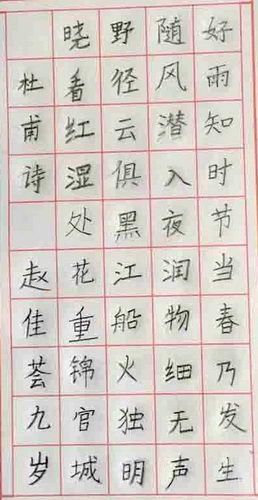 好雨知时节当春乃发生
随风潜入夜润物细无声
野径云俱黑江船火独明
晓看红湿处花重锦官城
杜甫诗 赵佳荟九岁